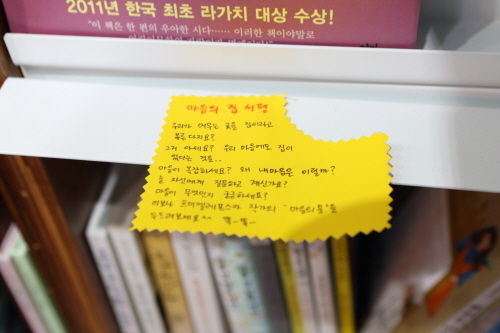 2011년 한국 최초 라가치 대상 수상!
"이 책은 한 편의 우아한 시다…… 이러한 책이야말로
마음의 집 서평
우리가 머무는 곳을 집이라고
부른다지요?
그거 아세요? 우리 마음에도 집이
있다는 것을..
마음이 복잡하세요? 왜 내마음은 이럴까?
늘 자신에게 질문하고 계신가요?
마음이 무엇인지 궁금하세요?
"마음의 문"을
두드려보세요^^ 똑-똑-